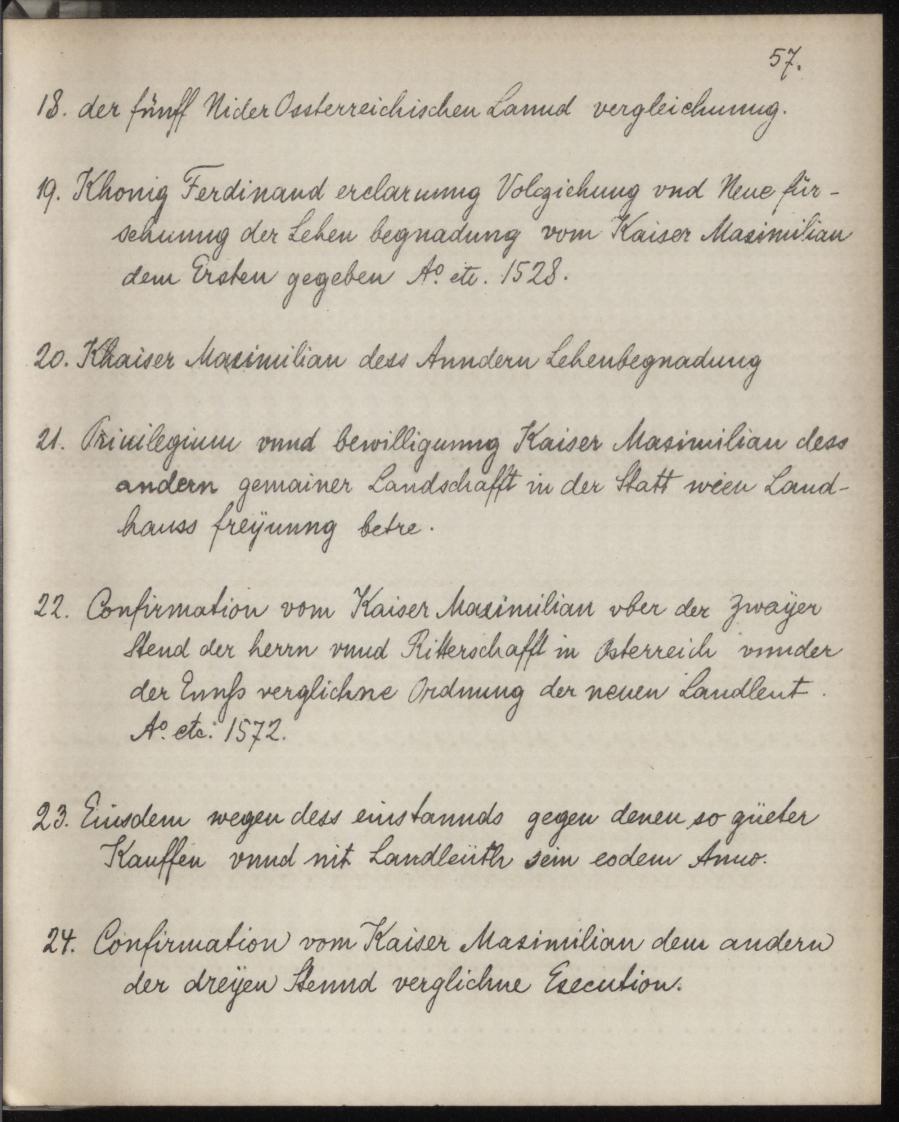 57.
18. der fünff NiderOossterreichischen Lannd vergleichunng.
19. Khonig Ferdinannd erclarunng Volcziehung vnd Neue für-
sehunng der Lehen begnadung vom Kaiser Maximilian
dem Ersten gegeben Aº. etc. 1528.
20. Khaiser Maximilian dess Anndern Lehenbegnadung
21. Priuilegium vnnd bewilligunng Kaiser Maximilian dess
andern gemainer Landschafft in der Statt wien Land-
hauss freÿunng betre.
22. Confirmation vom Kaiser Maximilian vber der zwaÿer
Stend der herrn vnnd Ritterschafft in Osterreich vnnder
der Ennß verglichne Ordnung der neuen Landleut.
Aº. etc: 1572.
23. Eiusdem wegen dess einstannds gegen denen so güeter
Kauffen vnnd nit Landleüth sein eodem Anno.
24. Confirmation vom Kaiser Maximilian dem andern
der dreÿen Stennd verglichne Execution.